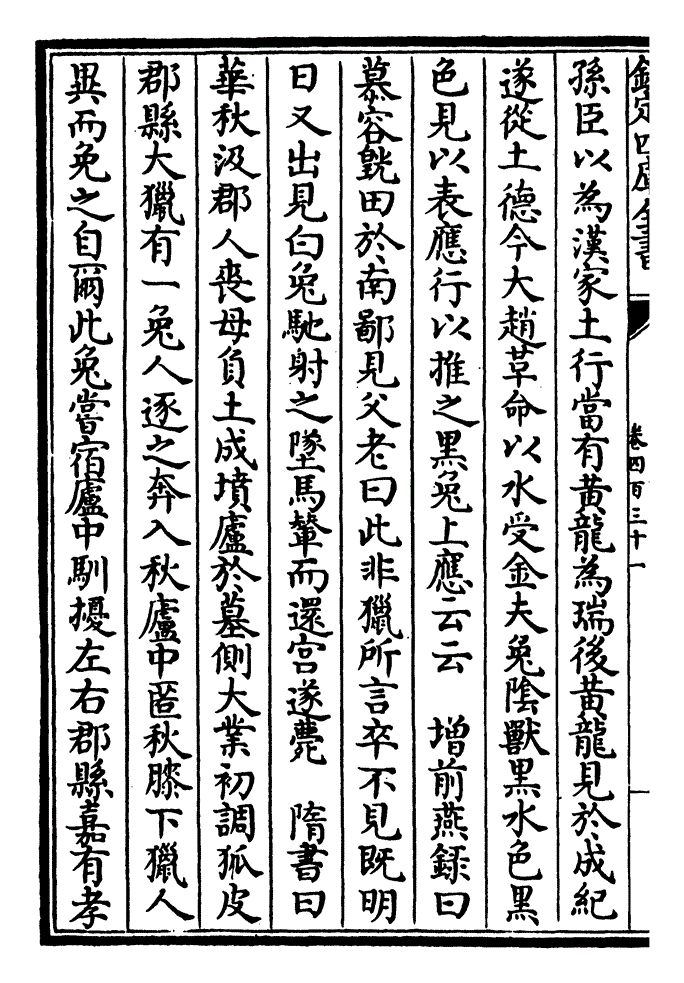 欽定四庫全書
卷四百三十一
孫臣以為漢家土行當有黃龍為瑞後黃龍見於成紀
遂從土德今大趙革命以水受金夫兔陰獸黑水色黑
色見以表應行以推之黑兔上應云云　增前燕録曰
慕容皝田於南鄙見父老曰此非獵所言卒不見既明
日又出見白兔馳射之墜馬輦而還宫遂薨　隋書曰
華秋汲郡人喪母負土成墳廬於墓側大業初調狐皮
郡縣大獵有一兔人逐之奔入秋廬中匿秋膝下獵人
異而免之自爾此兔嘗宿廬中馴擾左右郡縣嘉有孝